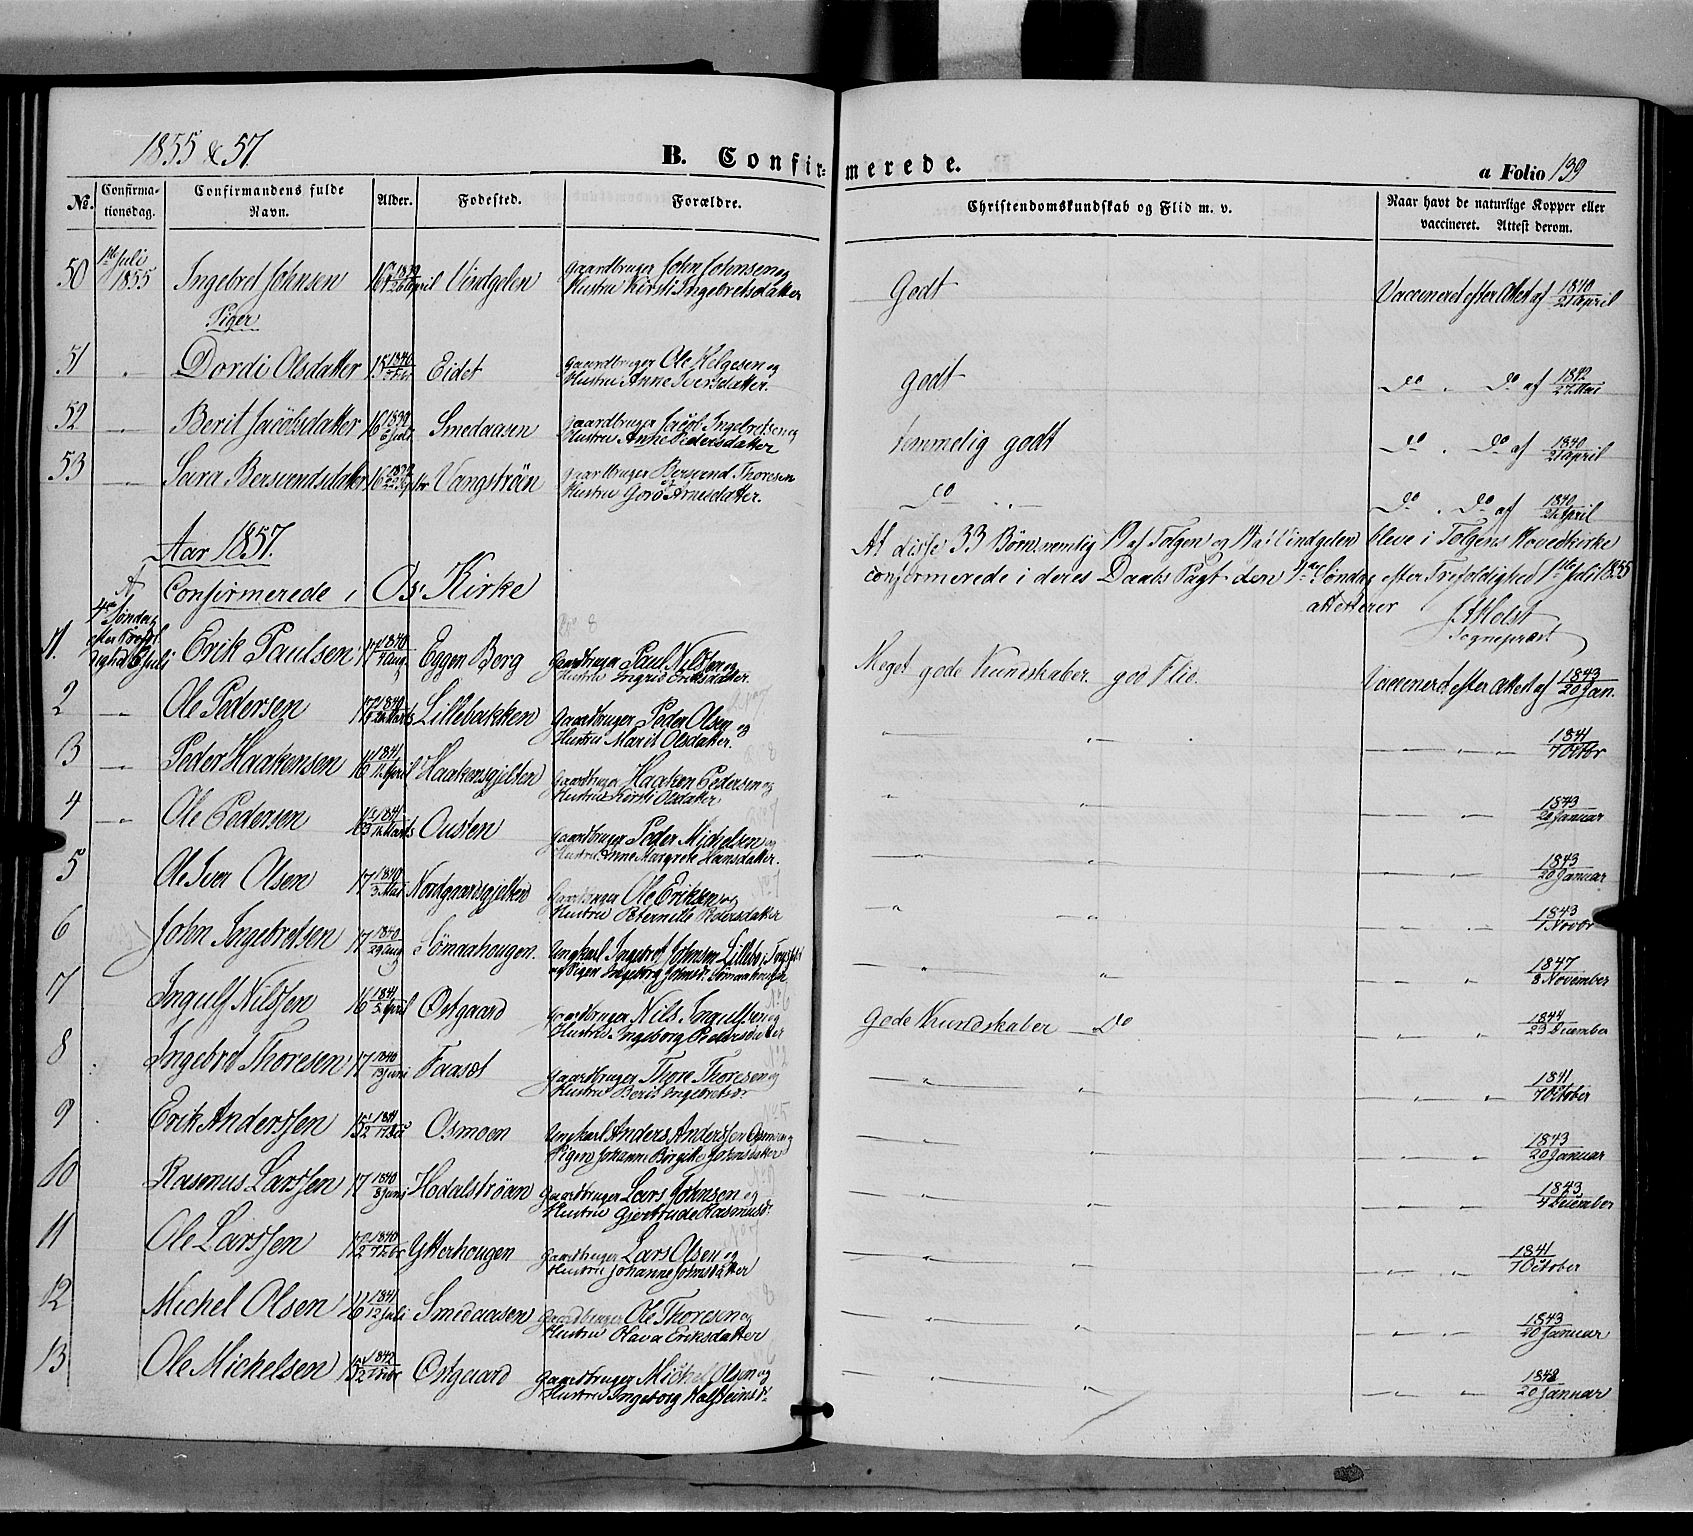 1855 & 57.
B. Confirmerede.
a Folio 139
No. Confirmationsdag. Confirmandens fulde Navn. Alder. Fødested. Forældre. Christendomskundskab og Flid m. v. Naar havt de naturlige Kopper eller vaccineret. Attest derom.
50 1ste Juli 1855 Ingebret Johnsen 16 1839 26 April Vindgelen Gaardbruger John Johnsen og Hustru Kirsti Ingebretsdatter Godt Vaccineret efter Attest af 1840 21 April
Piger
51 " Dordi Olsdatter 15 1840 Eidet Gaardbruger Ole Helgesen og Hustru Anne Iversdatter. godt Do . Do af 1842 27 Mai
52 " Berit Jacobsdatter 16 1839 6 Juli Smedaasen Gaardbruger Jacob Ingebretsen og Hustru Anne Pedersdatter temmelig godt Do . Do af 1840 21 April
53 " Sara Bersvendsdatter 16 1839 Vangstrøen Gaardbruger Bersvend Thoresen Hustru Goro Arnesdatter. Do Do . Do af 1840 21 April
At disse 33 Børn, nemlig 19 af Tolgen og 14 af Vindgelen bleve i Tolgens Hovedkirke
confirmerede i deres Daabs Pagt den Søndag efter Trefoldighed 1ste Juli 1855
attesterer Holst
Sognepræst
Aar 1857.
Confirmerede i Os Kirke
4de Søndag efter Trefoldighed 5 Juli
1. Erik Paulsen 17 1840 Aug. Eggen Berg Gaardbruger Paul Nilssen og Hustru Ingrid Eriksdatter. Meget gode Kundskaber. god Flid. Vaccinered efter Attest af 1843 20 Jan.
2 " Ole Pedersen 17 1840 Marts Lillebakken Gaardbruger Peder Olsen og Hustru Marit Olsdatter. " " 1841 7 Octbr
3 " Peder Haakensen 16 1841 April Haakensgjelten Gaardbruger Haaken Pedersen og Hustru Kirsti Olsdatter " " 1843 20 Januar
4 " Ole Pedersen 16 1841 Marts Ousten Gaardbruger Peder Michelsen og Hustru Anne Margrete Hansdatter. " " 1843 20 Januar
5 Ole Iver Olsen 17 1840 3 Mai Nordgaardsgjelten Gaardbruger Ole Eriksen og Hustru Peternille Pedersdatter " " 1843 Novbr
6 John Ingebretsen 17 1840 29 Aug Sømaahougen. Ungkarl Ingebret Johnsen og Pigen Ingeborg " " 1847 8 November
7 Ingulf Nilssen 16 1841 5 April Østgaard Gaardbruger Nils Ingulfsen og Hustru Ingeborg Pedersdatter Gode Kundskaber Do 1844 23 December
8 Ingebret Thoresen 17 1840 13 Juni Faaset Gaardbruger Thore Thoresen og Hustru Berit Ingebretsdr " " 1841 7 October
9 Erik Anderssen 1841 Osmoen Ungkarl Anders Anderssen Osmoen og Pigen Johanne Birgitte Johnsdatter " " 1843 20 Januar
10 Rasmus Larssen 17 1840 8 Juni Hodalstrøen Gaardbruger Lars Johnsen og Hustru Gjertrude Rasmusd. " " 1843 4 December
11 Ole Larssen 1840 Ytterhougen Gaardbruger Lars Olsen og Hustru Johanne Johnsdatter " " 1841 7 October
12 Michel Olsen 16 1841 12 Juli Smedaasen Gaardbruger Ole Thoresen og Hustru Olava Eriksdatter " " 1843 20 Januar
13 Ole Michelsen 1842 Østgaard Gaardbruger Michel Olsen og Hustru Ingeborg " " 1843 20 Januar